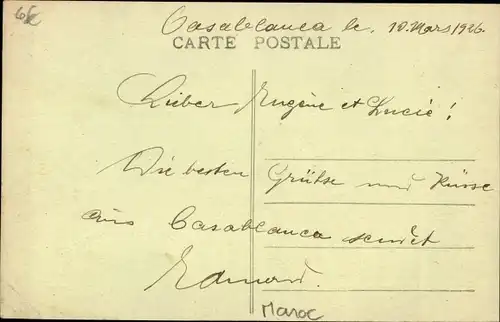 6€
Casablanca le. 10. Mars 1926.
CARTE POSTALE
Lieber Eugène et Lucie!
Die besten Grütse und Küsse
aus Casablanca sendet
Edmond.
Maroc